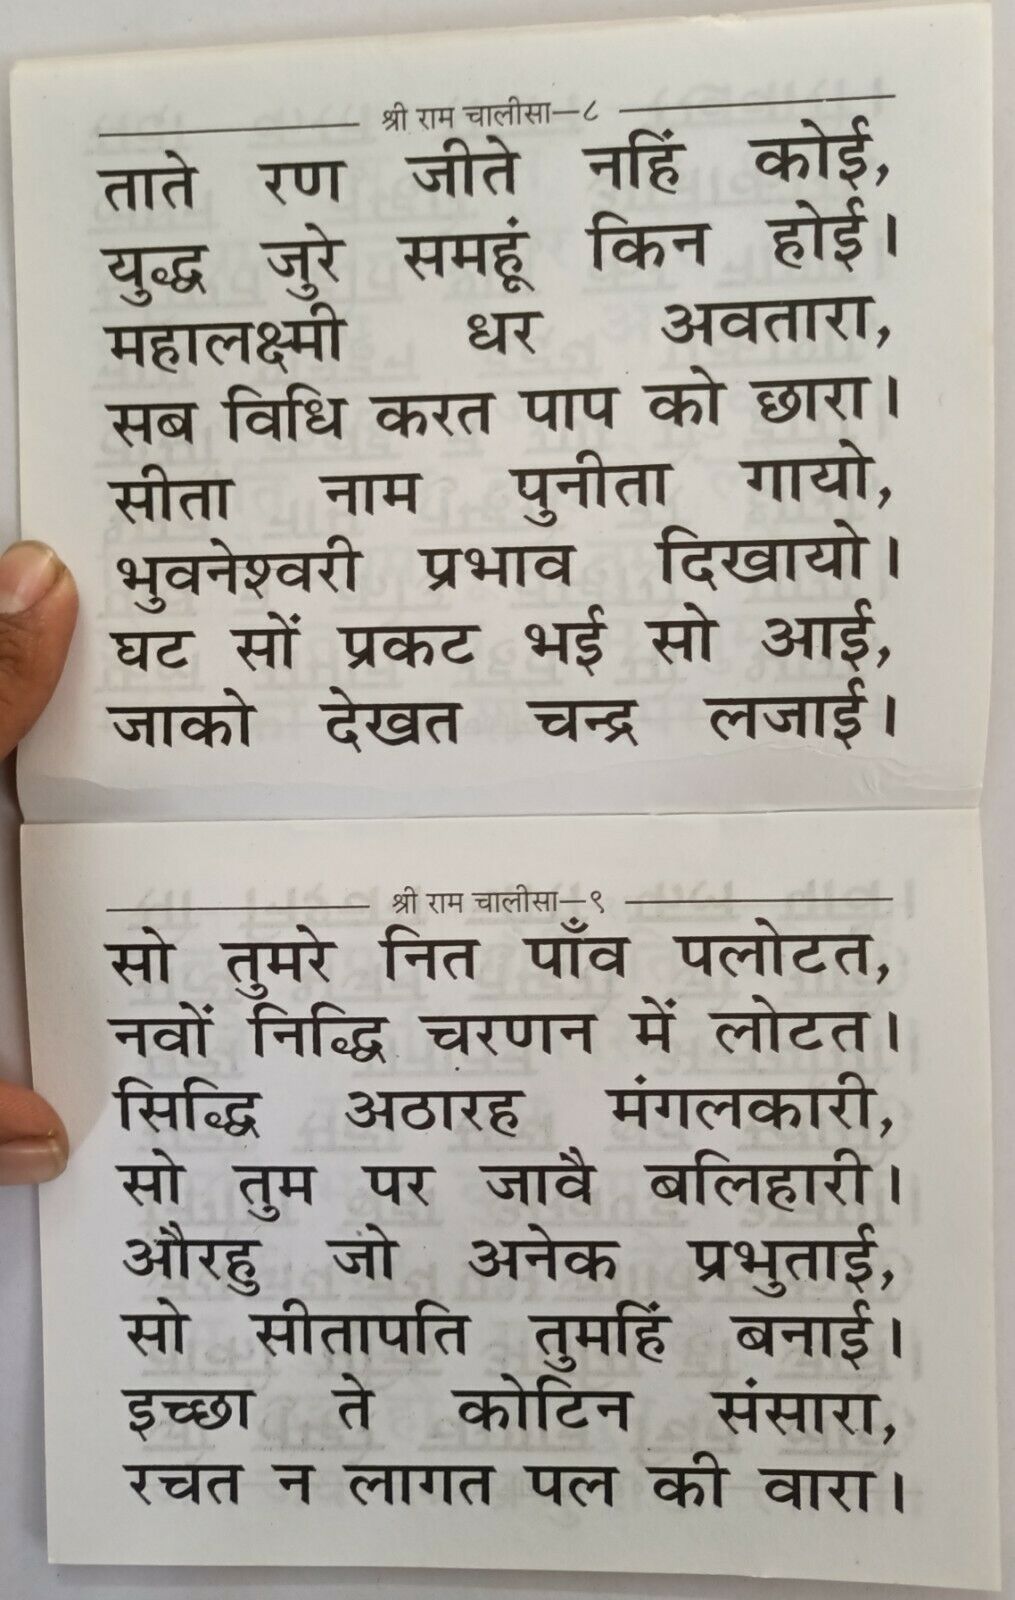 श्री राम चालीसा—८
ताते रण जीते नहिं कोई,
युद्ध जुरे समहूं किन होई।
महालक्ष्मी धर अवतारा,
सब विधि करत पाप को छारा।
सीता नाम पुनीता गायो,
भुवनेश्वरी प्रभाव दिखायो।
घट सों प्रकट भई सो आई,
जाको देखत चन्द्र लजाई।
श्री राम चालीसा—९
सो तुमरे नित पाँव पलोटत,
नवों निद्धि चरणन में लोटत।
सिद्धि अठारह मंगलकारी,
सो तुम पर जावै बलिहारी।
औरहु जो अनेक प्रभुताई,
सो सीतापति तुमहिं बनाई।
इच्छा ते कोटिन संसारा,
रचत न लागत पल की वारा।